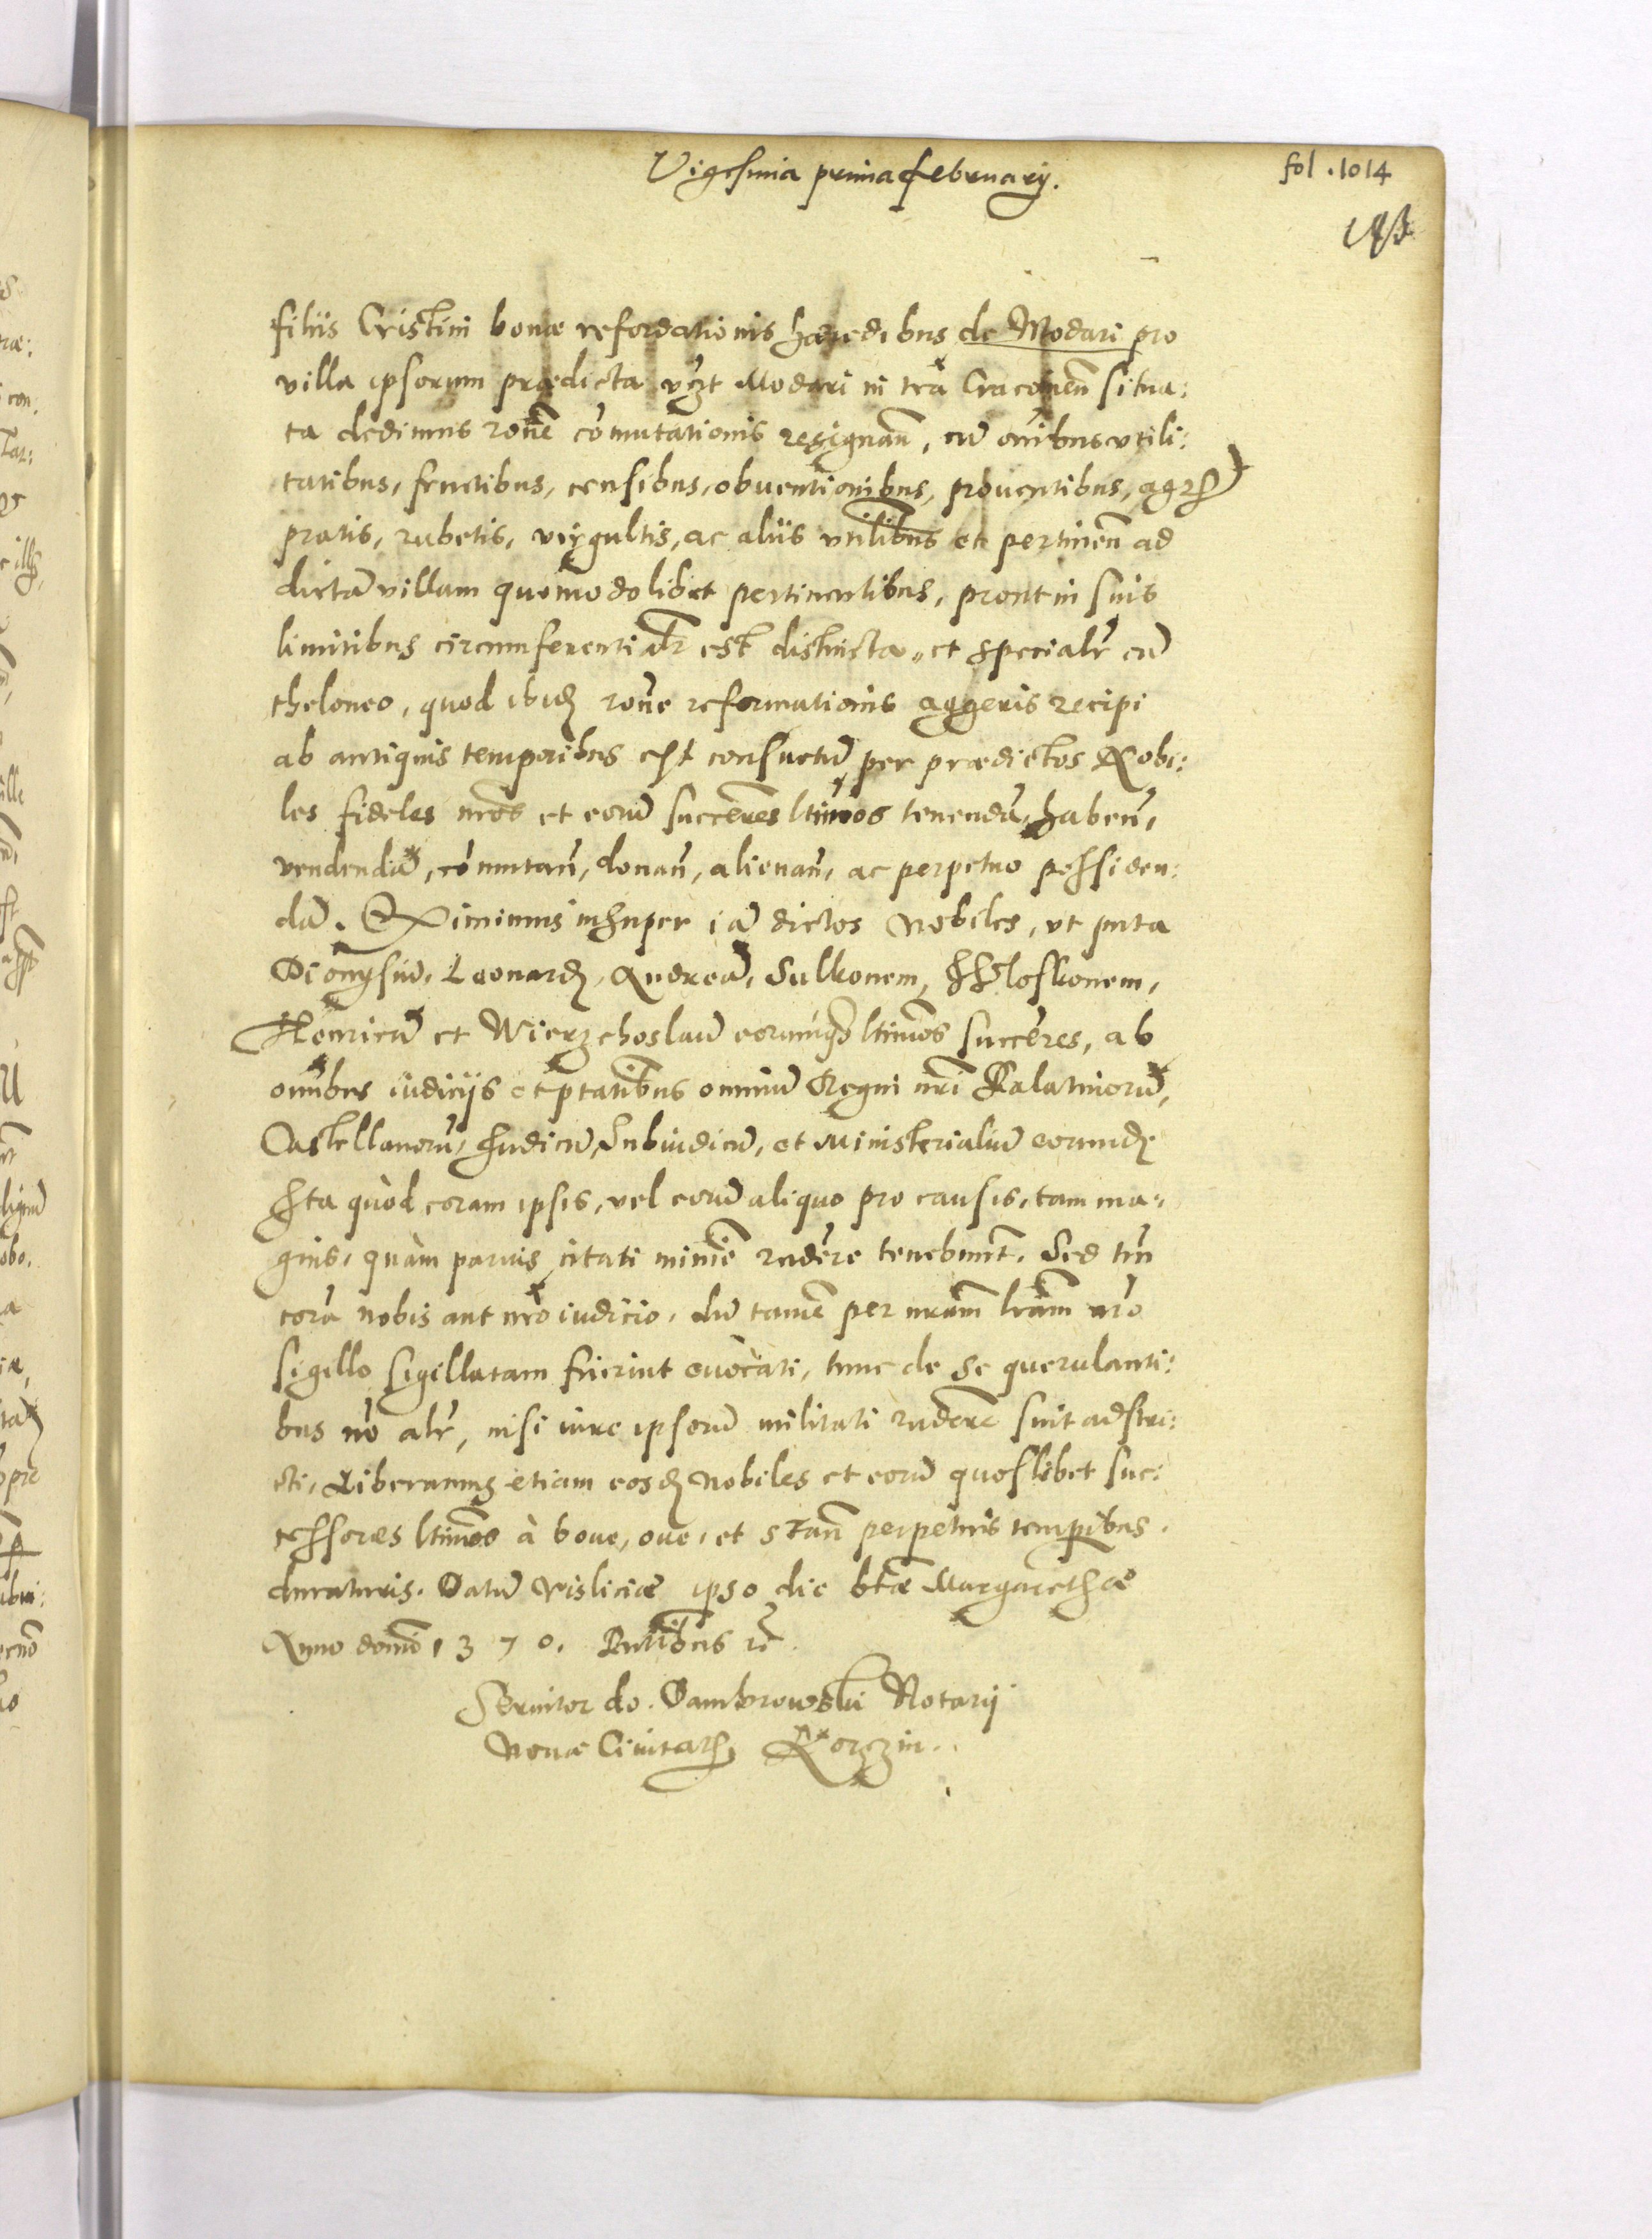 Vigesima prima February.
fol. 1014
filiis Cristini bonæ recordationis hæredibus de Modari pro
villa ipsorum prædicta vzt Modari in tra Cracovien situa:
ta dedimus rone comutationis resignan, cu omibus utili:
tatibus, fructibus, censibus, obventionibus, proventibus, agris
pratis, rubetis, virgultis, ac aliis utilibus et pertinen ad
dicta villam quomodolibet pertinentibus, prout in suis
limitibus circumferentialr est distincta, et specialr cu
theloneo, quod ibid rone reformationis aggeris recipi
ab antiquis temporibus est consuetu per prædictos Nobi:
les fideles nros et eoru succeres ltimos tenenda, haben,
vendenda, comutan, donan, alienan, ac perpetuo possiden:
da. Eximimus insuper ia dictos Nobiles, ut puta
Dionysiu, Leonard, Andrea, Sulkonem,
Henricu et Wierzchoslau eorumq ltimos succeres, ab
omibus iudiciis et ptatibus omniu Regni nri Palatinoru,
Castellanoru, Iudicu, Subiudicu, et Ministerialiu eorumd
Ita quòd coram ipsis, vel eoru aliquo pro causis, tam ma:
gnis, quàm parvis citati minime rndere tenebunt. Sed tm
cora nobis aut nro iudicio, du tame per nram lram nro
sigillo sigillatam fuerint evocati, tunc de se querulanti:
bus no alr, nisi iure ipsoru militali rndere sint adstri:
cti, Liberamus etiam eosd Nobiles et eoru quoslibet suc:
cessores ltimos à bove, ove, et stan perpetuis temporibus
duraturis. Datu Visliciæ ipso die btæ Margarethæ
Anno domi 1370. Pntibus
Servitor do. Dambrowski Notarij
Novæ Civitatis Korzin.